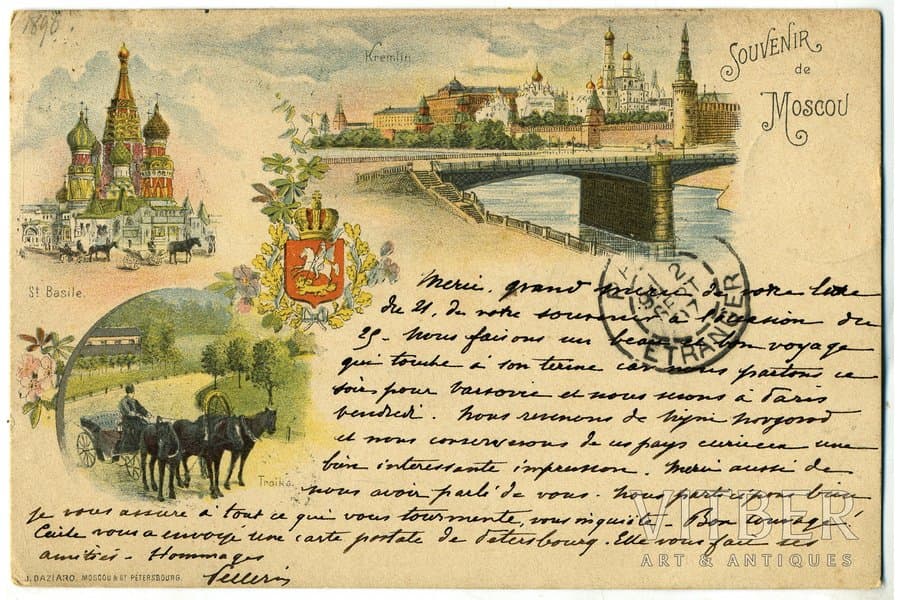 1898
Kremlin.
SOUVENIR
de
MOSCOU
St Basile.
Troika.
PARIS
2
SEPT
97
ETRANGER
Merci, grand merci de votre lettre
du 21, de votre souvenir à l'occasion du
25 - Nous faisons un beau et bon voyage
qui touche à son terme car nous partons ce
soir pour Varsovie et nous serons à Paris
vendredi. Nous revenons de Nijni Novgorod
et nous conserverons de ces pays curieux une
bien intéressante impression. Merci aussi de
nous avoir parlé de vous. Nous participons bien
je vous assure à tout ce qui vous tourmente, vous inquiète - Bon courage!
Cécile vous a envoyé une carte postale de Petersbourg. Elle vous fait ses
amitiés - Hommages
J. DAZIARO. MOSCOU & ST PÉTERSBOURG.
VITBER
ART & ANTIQUES